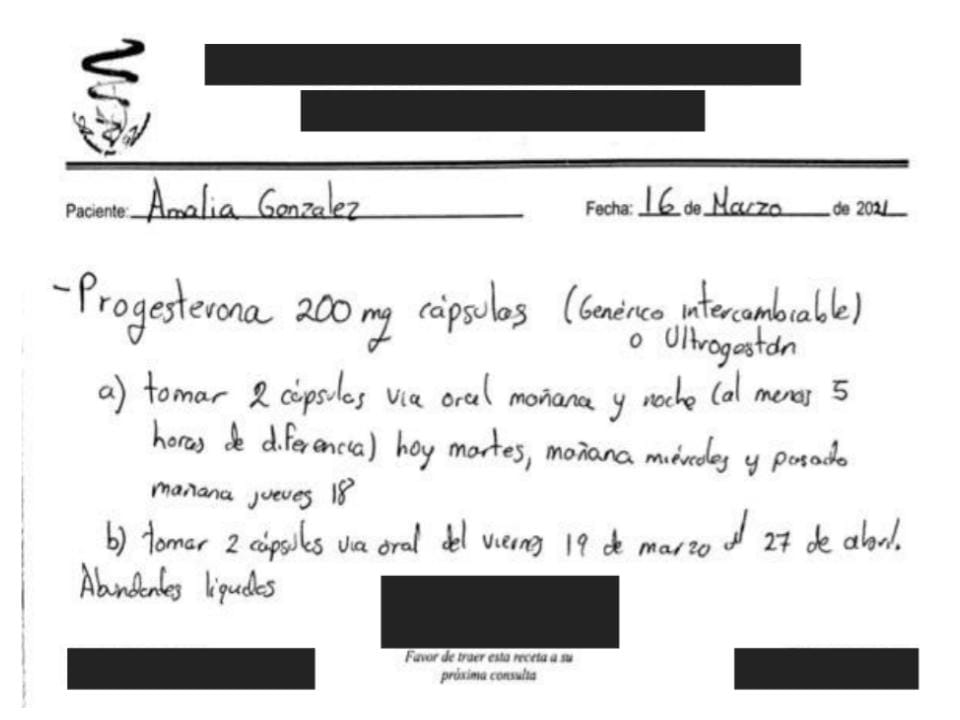 Paciente: Amalia Gonzalez Fecha: 16 de Marzo de 2021
-Progesterona 200 mg cápsulas (Genérico intercambiable)
o Ultrogestan
a) tomar 2 cápsulas via oral mañana y noche (al menos 5
horas de diferencia) hoy martes, mañana miércoles y pasado
mañana jueves 18
b) tomar 2 cápsulas via oral del viernes 19 de marzo al 27 de abril.
Abundantes liquidos
Favor de traer esta receta a su
próxima consulta